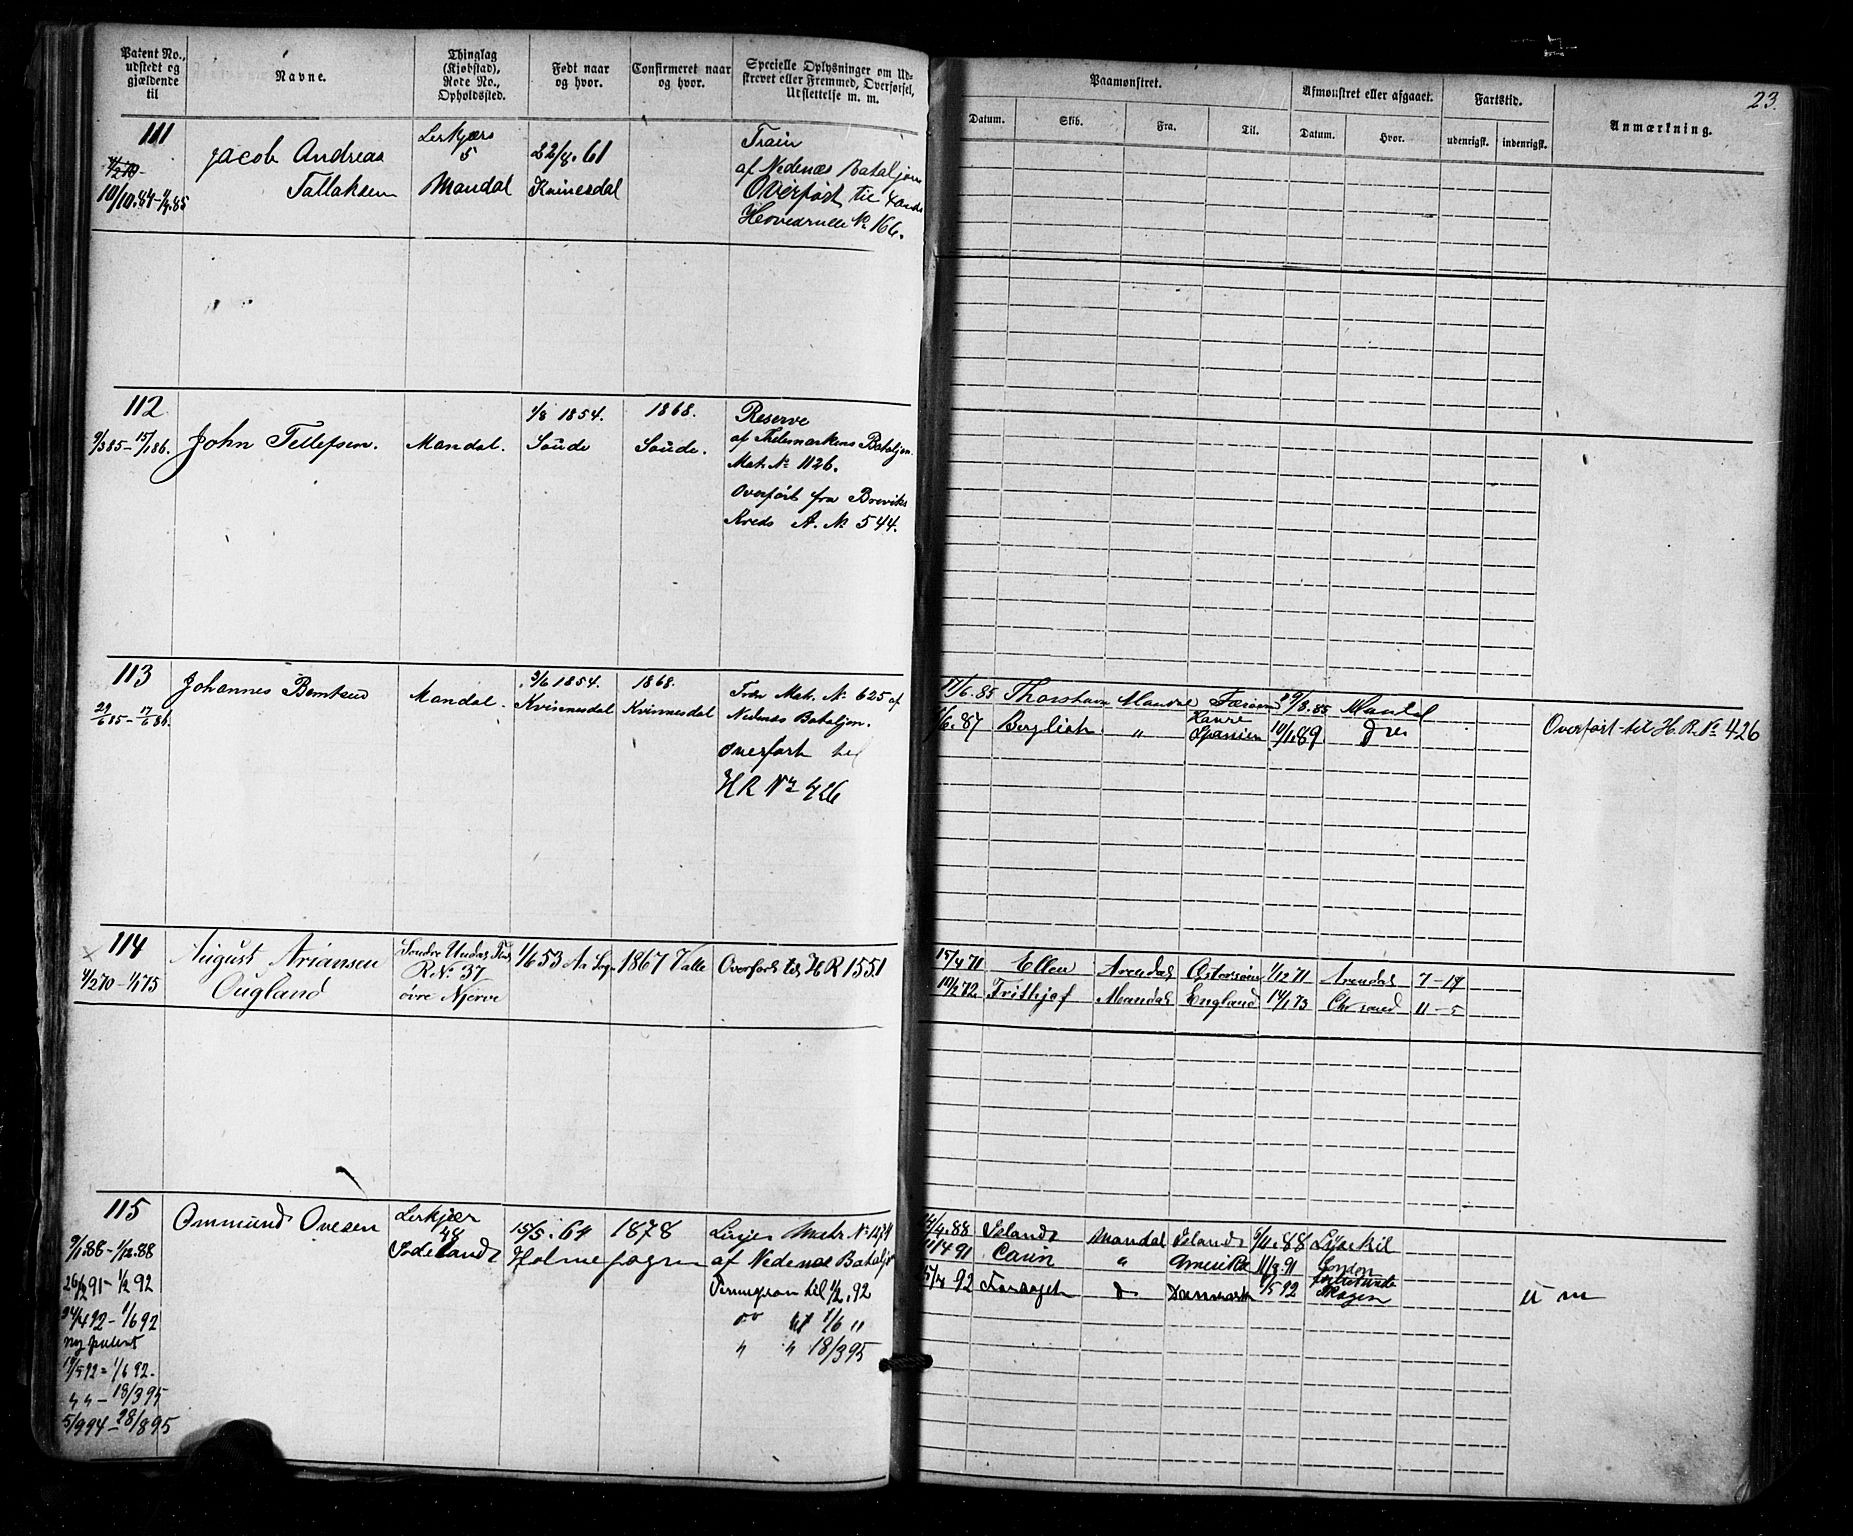 Patent No.,
udstedt og
gjældende
til
Navne.
Thinglag
(Kjøbstad),
Rote No.,
Opholdssted.
Født naar
og hvor.
Confirmeret naar
og hvor.
Specielle Oplysninger om Ud-
skrevet eller Fremmed, Overførsel,
Udslettelse m. m.
Paamønstret.
Datum.
Skib.
Fra.
Til.
Afmønstret eller afgaaet.
Datum.
Hvor.
Fartstid.
udenrigsk.
indenrigsk.
Anmærkning.
23.
111
10/10.84-1/4.85
Jacob Andreas
Tallaksen
5
Mandal
22/8.61
Kvinesdal
Train
af Nedenæs Bataljon
Overført til
Hovedrulle No 166.
112
9/3 85 - 15/1 86.
John Tellefsen.
Mandal.
1/8 1854.
Saude
1868.
Saude.
Reserve
af Thelemarkens Bataljon.
Mat. No 1126.
Overført fra Breviks
Kreds A. No 544.
113
29/6 85 - 17/6 86.
Johannes Berntsen
Mandal.
3/6 1854.
Kvinnesdal
1868.
Kvinnesdal
Mat. No 625 af
Nedenæs Bataljon.
Overført til
H R No 426
17/6.85 Thorshavn Mandal 29/8.85 Mandal
/6.87 Bergliot " Spanien 10/1.89
Overført til H. R. No 426
114
4/2 70 - 1/1 75
August Ariansen
Ougland
R No 37
øvre Njerve
1/6 53
1867 Valle
Overført til H R 1551
15/4 71 Ellen Arendal Østersøen 1/12 71 Arendal 7 - 17
Frithjof Mandal England 14/1 73 11 - 5
115
9/1.88 - 1/12.88
26/2 91 - 1/2 92
24/4 92 - 1/6 92
ny patent
19/5 92 = 1/6 92.
" " - 18/3 95
5/9 94 - 28/8 95
Ommund Ovesen
Lerkjær
48
15/5.64
Holme
1878
sogn
Linje Matr No 1274
af Nedenæs Bataljon
Permission til 1/2.92
1/6 "
" " 18/3 95
/4.88 Island Mandal Island 9/4.88 Lysekil
91 Carin " Amerika 11/3.91 London
92 d Danmark 1/5 92 Skagen